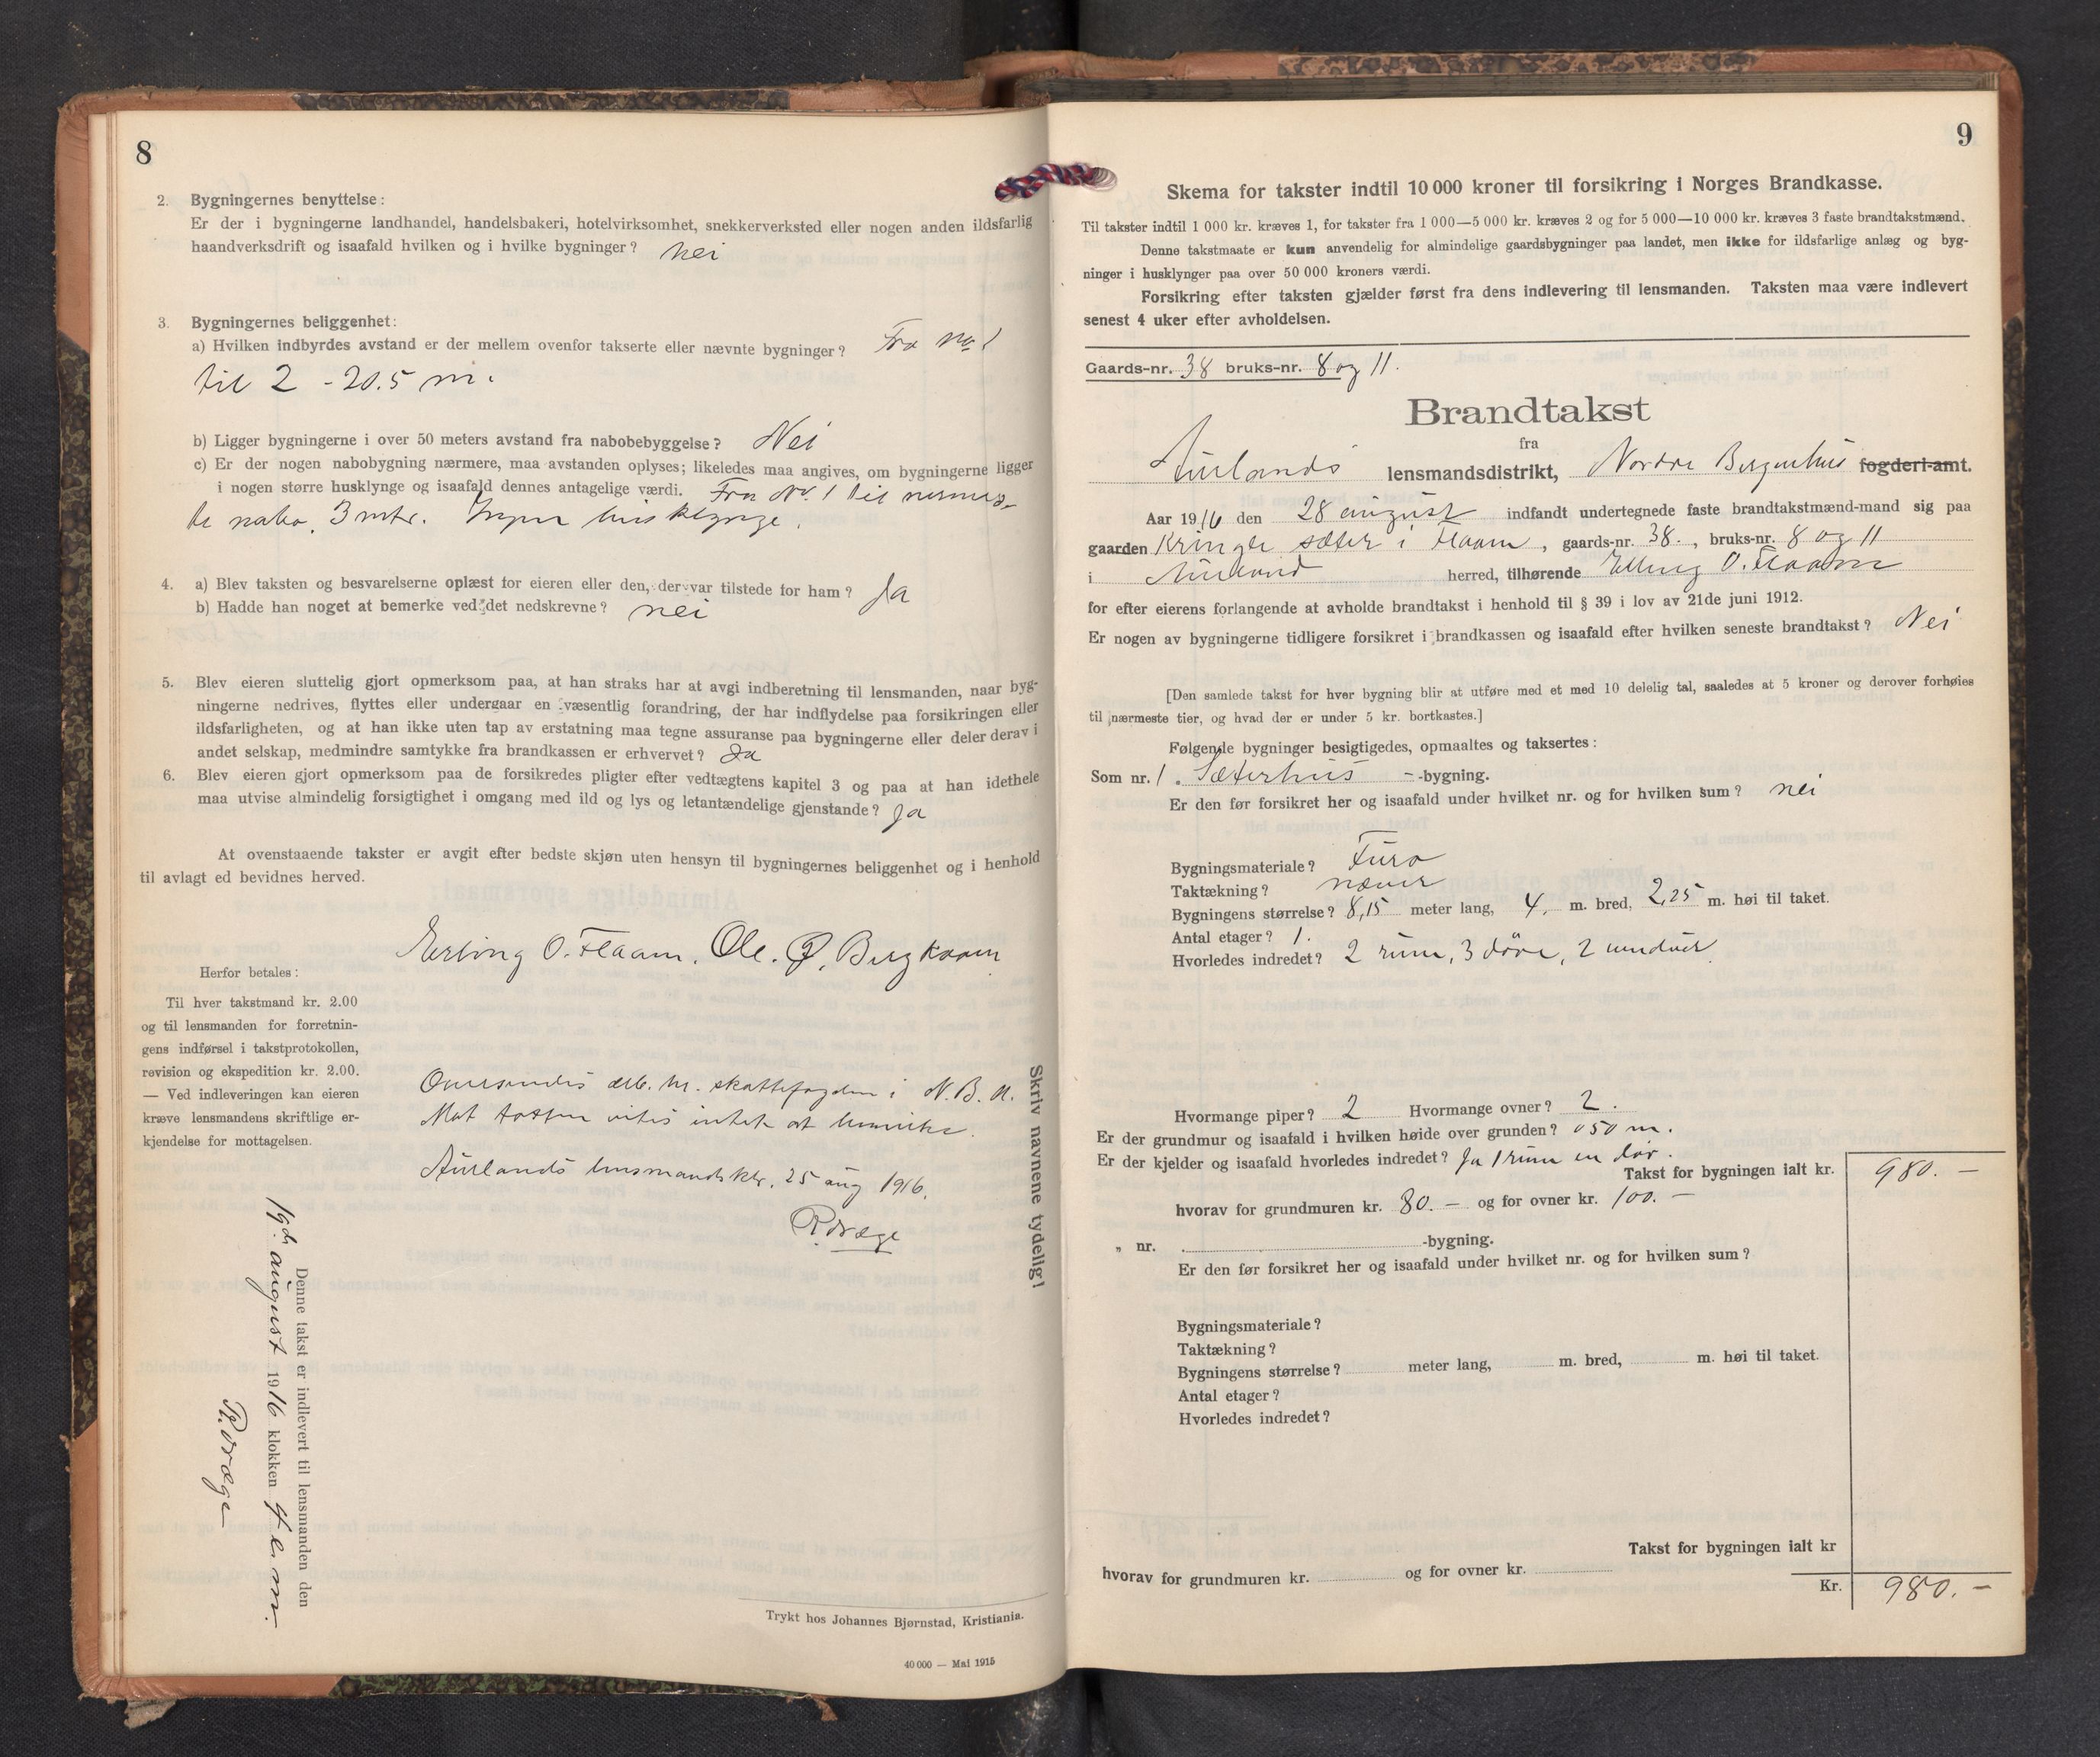 8
2. Bygningernes benyttelse:
Er der i bygningerne landhandel, handelsbakeri, hotelvirksomhet, snekkerverksted eller nogen anden ildsfarlig
haandverksdrift og isaafald hvilken og i hvilke bygninger? nei
3. Bygningernes beliggenhet:
a) Hvilken indbyrdes avstand er der mellem ovenfor takserte eller nævnte bygninger? Fra No 1
til 2 - 20.5 m.
b) Ligger bygningerne i over 50 meters avstand fra nabobebyggelse? Nei
c) Er der nogen nabobygning nærmere, maa avstanden oplyses; likeledes maa angives, om bygningerne ligger
i nogen større husklynge og isaafald dennes antagelige værdi. Fra No. 1 til nermes-
te nabo. 3 mtr. Ingen husklynge.
4. a) Blev taksten og besvarelserne oplæst for eieren eller den, der var tilstede for ham? Ja
b) Hadde han noget at bemerke ved det nedskrevne? nei
5. Blev eieren sluttelig gjort opmerksom paa, at han straks har at avgi indberetning til lensmanden, naar byg-
ningerne nedrives, flyttes eller undergaar en væsentlig forandring, der har indflydelse paa forsikringen eller
ildsfarligheten, og at han ikke uten tap av erstatning maa tegne assuranse paa bygningerne eller deler derav i
andet selskap, medmindre samtykke fra brandkassen er erhvervet? Ja
6. Blev eieren gjort opmerksom paa de forsikredes pligter efter vedtægtens kapitel 3 og paa at han idethele
maa utvise almindelig forsigtighet i omgang med ild og lys og letantændelige gjenstande? Ja
At ovenstaaende takster er avgit efter bedste skjøn uten hensyn til bygningernes beliggenhet og i henhold
til avlagt ed bevidnes herved.
Erling O. Flaam. Ole. O. Bergkvam
Herfor betales:
Til hver takstmand kr. 2.00
og til lensmanden for forretnin-
gens indførsel i takstprotokollen,
revision og ekspedition kr. 2.00.
— Ved indleveringen kan eieren
kræve lensmandens skriftlige er-
kjendelse for mottagelsen.
Oversendes ærb. hr. skattefogden i N. B. A.
Mot taksten vites intet at bemerke.
Aurlands lensmandsktr. 25 aug 1916.
R. Dræge
Skriv navnene tydelig!
Denne takst er indlevert til lensmanden den
19de august 1916 klokken 4 e. m.
R. Dræge
Trykt hos Johannes Bjørnstad, Kristiania.
40 000 — Mai 1915
9
Skema for takster indtil 10 000 kroner til forsikring i Norges Brandkasse.
Til takster indtil 1 000 kr. kræves 1, for takster fra 1 000—5 000 kr. kræves 2 og for 5 000—10 000 kr. kræves 3 faste brandtakstmænd.
Denne takstmaate er kun anvendelig for almindelige gaardsbygninger paa landet, men ikke for ildsfarlige anlæg og byg-
ninger i husklynger paa over 50 000 kroners værdi.
Forsikring efter taksten gjælder først fra dens indlevering til lensmanden. Taksten maa være indlevert
senest 4 uker efter avholdelsen.
Gaards-nr. 38 bruks-nr. 8 og 11.
Brandtakst
fra
Aurlands lensmandsdistrikt, Nordre Bergenhus fogderi-amt.
Aar 1916 den 28 august indfandt undertegnede faste brandtakstmænd-mand sig paa
gaarden Kringle sæter i Flaam, gaards-nr. 38., bruks-nr. 8 og 11
i Aurland herred, tilhørende Elling O. Flaam
for efter eierens forlangende at avholde brandtakst i henhold til § 39 i lov av 21de juni 1912.
Er nogen av bygningerne tidligere forsikret i brandkassen og isaafald efter hvilken seneste brandtakst? Nei
[Den samlede takst for hver bygning blir at utføre med et med 10 delelig tal, saaledes at 5 kroner og derover forhøies
til nærmeste tier, og hvad der er under 5 kr. bortkastes.]
Følgende bygninger besigtigedes, opmaaltes og taksertes:
Som nr. 1. Sæterhus - -bygning.
Er den før forsikret her og isaafald under hvilket nr. og for hvilken sum? nei
Bygningsmateriale? Furo
Taktækning? næver
Bygningens størrelse? 8,15 meter lang, 4. m. bred, 2,25 m. høi til taket.
Antal etager? 1.
Hvorledes indredet? 2 rum, 3 døre, 2 vinduer
Hvormange piper? 2 Hvormange ovner? 2.
Er der grundmur og isaafald i hvilken høide over grunden? 050 m.
Er der kjelder og isaafald hvorledes indredet? Ja 1 rum en dør.
Takst for bygningen ialt kr. 980. —
hvorav for grundmuren kr. 80. — og for ovner kr. 100. —
„ nr. -bygning.
Er den før forsikret her og isaafald under hvilket nr. og for hvilken sum?
Bygningsmateriale?
Taktækning?
Bygningens størrelse? meter lang, m. bred, m. høi til taket.
Antal etager?
Hvorledes indredet?
Takst for bygningen ialt kr
hvorav for grundmuren kr. og for ovner kr.
Kr. 980. —